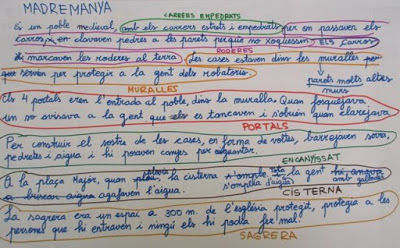 MADREMANYA
CARRERS EMPEDRATS
És un poble medieval, amb els carrers estrets i empedrats per on passaven els
carros, i en clavaven pedres a les parets perquè no xoquessin. Els carros
hi marcaven les roderes al terra.
RODERES
Les cases estaven dins les muralles per
que servien per protegir a la gent dels robatoris.
parets molt altes
murs
MURALLES
Els 4 portals eren l'entrada al poble, dins la muralla. Quan fosquejava
un no avisava a la gent que els es tancaven i s'obrien quan clarejava
PORTALS
Per construir el sostre de les cases, en forma de voltes, barrejaven sorra,
pedretes i aigua i hi posaven canyes per aguantar.
ENCANYISSAT
A la plaça Major, quan plovia la cisterna s'omplia, tota la gent hi anava
s'omplia d'aigua amb galledes
a buscar aigua agafaven l'aigua.
CISTERNA
La sagrera era un espai a 300 m. de l'església protegit, protegia a les
persones que hi entraven i ningú els hi podia fer mal.
SAGRERA